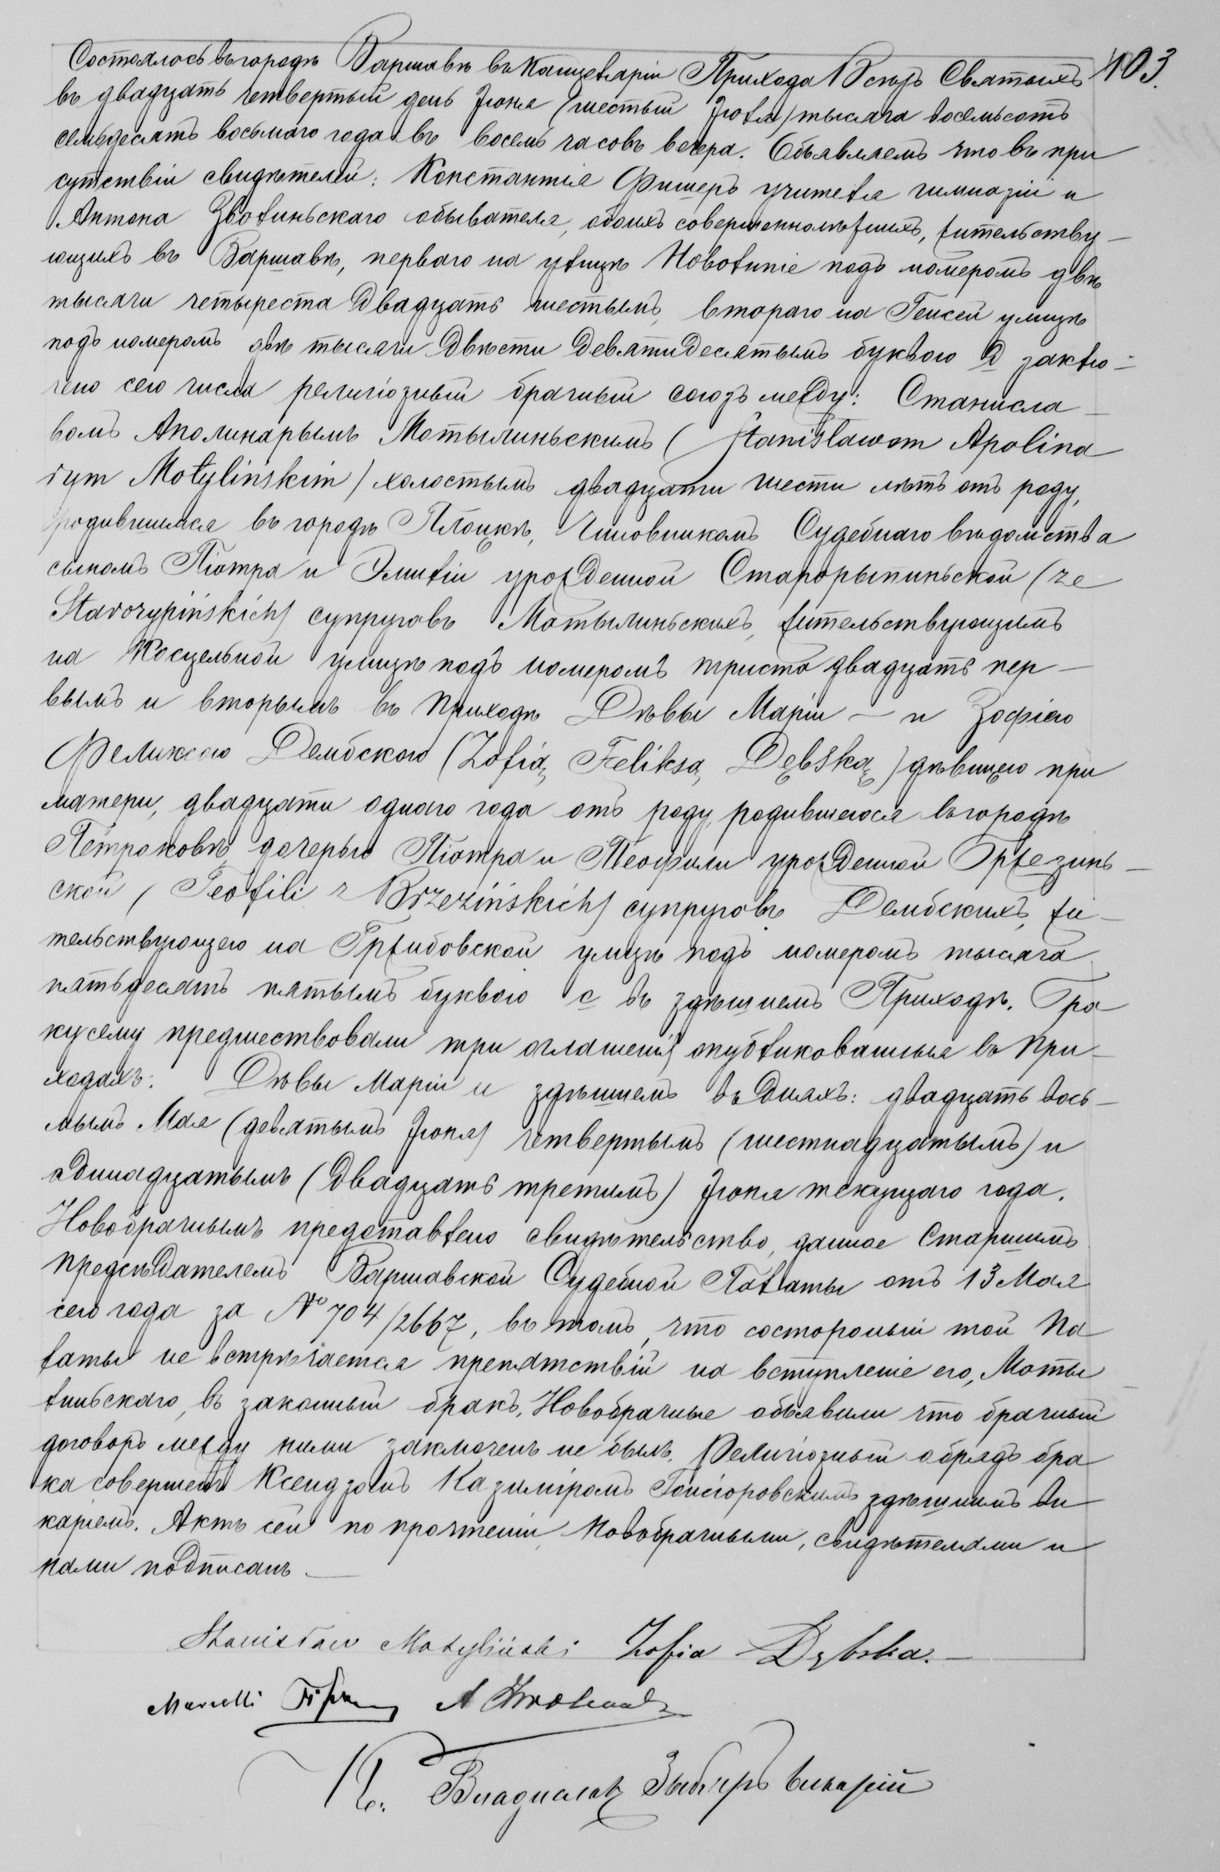 Состоялось въ городѣ Варшавѣ въ Канцеляріи Прихода Всѣхъ Святыхъ 103.
въ двадцать четвертый день Іюня (шестый Іюля) тысяча восемьсотъ
семьдесятъ восьмаго года въ восемь часовъ вечера. Объявляемъ что въ при
сутствіи свидѣтелей: Константія Фишеръ учителя гимназіи и
Антона обывателя, обоихъ совершеннолѣтнихъ, жительству-
ющихъ въ Варшавѣ, перваго на улицѣ Новолипіе подъ номеромъ двѣ
тысячи четыреста двадцать шестымъ, втораго на Генсей улицѣ
подъ номеромъ двѣ тысячи двѣсти девятидесятымъ буквою д заклю-
чено сего числа религіозный брачный союзъ между: Станисла-
вомъ Аполинарымъ Мотылиньскимъ (Stanisławom Apolina
rym Motylińskim) холостымъ двадцати шести лѣтъ отъ роду,
родившимся въ городѣ Плоцкѣ, Чиновникомъ Судебнаго вѣдомства
сыномъ Піотра и Эмиліи урожденной Старорыпиньской (ze
Starorypińskich) супруговъ Мотылиньскихъ, жительствующимъ
на Косцельной улицѣ подъ номеромъ триста двадцать пер-
вымъ и вторымъ въ Приходѣ Дѣвы Маріи — и Зофіею
Феликсою Дембскою (Zofią Feliksą Dębską) дѣвицею при
матери, двадцати одного года отъ роду, родившеюся въ городѣ
Петроковѣ, дочерью Піотра и Теофили урожденной Бржезинь-
ской (Teofili z Brzezińskich) супруговъ Дембскихъ, жи-
тельствующею на Гржибовской улицѣ подъ номеромъ тысяча
пятьдесятъ пятымъ буквою с въ здѣшнемъ Приходѣ. Бра
ку сему предшествовали три оглашенія опубликованныя въ При-
ходахъ: Дѣвы Маріи и здѣшнемъ въ дняхъ: двадцать вось-
мымъ Мая (девятымъ Іюня) четвертымъ (шестнадцатымъ) и
одинадцатымъ (двадцать третимъ) Іюня текущаго года.
Новобрачнымъ представлено свидѣтельство, данное Старшимъ
Предсѣдателемъ Варшавской Судебной Палаты отъ 13 Мая
сего года за № 704/2667, въ томъ, что состороный той Па
латы не встрѣчается препятствій на вступленіе его, Моты-
линьскаго, въ законный бракъ. Новобрачные объявили что брачный
договоръ между ними заключенъ не былъ. Религіозный обрядъ бра
ка совершенъ Ксендзомъ Казиміромъ Гонсіоровскимъ здѣшнимъ ви
каріемъ. Актъ сей по прочтеніи Новобрачными, свидѣтелями и
нами подписанъ. —
Stanisław Motyliński Zofia Dębska. —
Marcelli
Кс. Владиславъ викарій